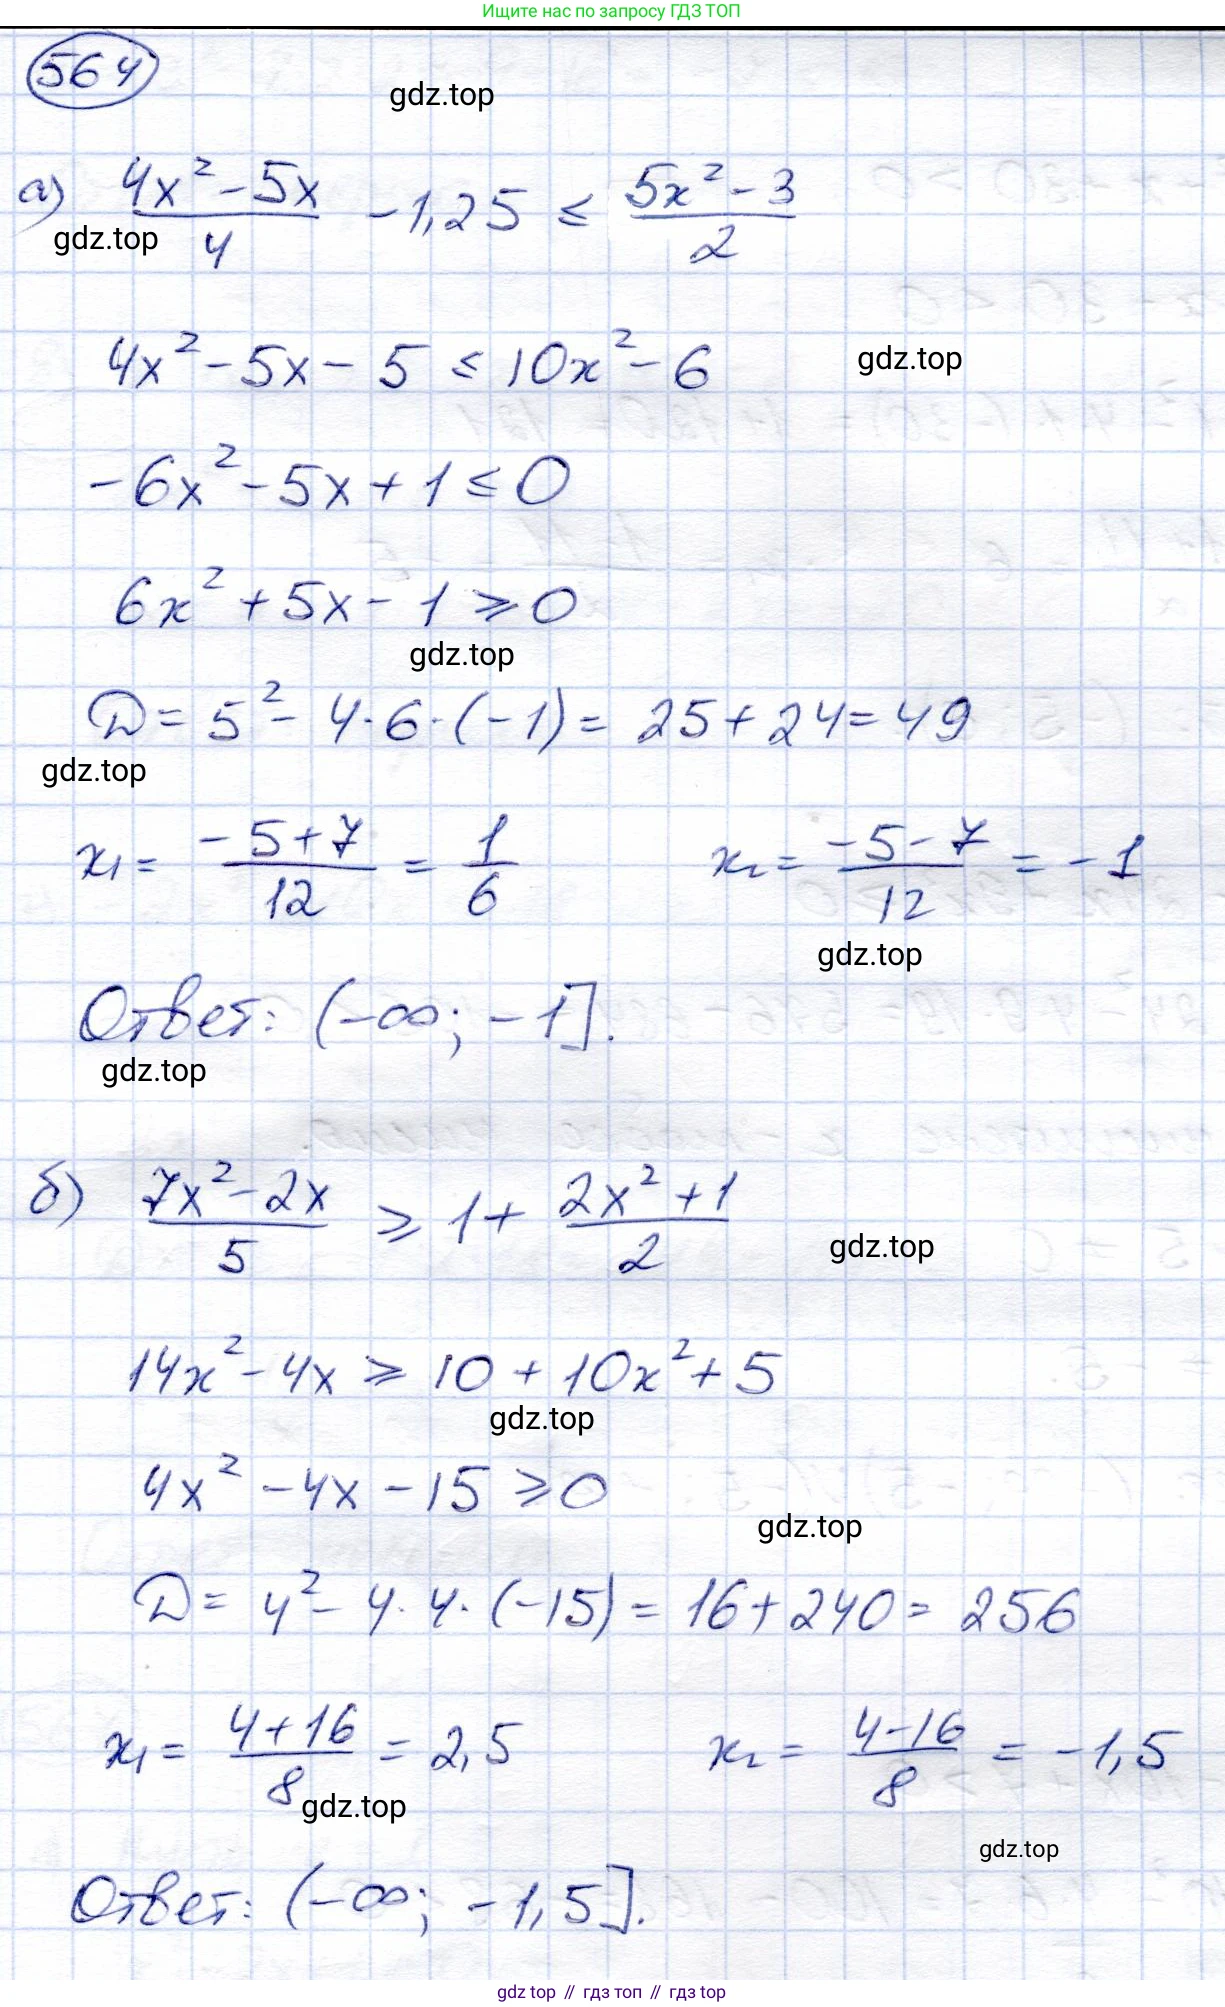 Ищите нас по запросу ГДЗ ТОП
564
gdz.top
а) (4x² - 5x)/4 - 1,25 ≤ (5x² - 3)/2
gdz.top
4x² - 5x - 5 ≤ 10x² - 6
gdz.top
-6x² - 5x + 1 ≤ 0
6x² + 5x - 1 ≥ 0
gdz.top
D = 5² - 4·6·(-1) = 25 + 24 = 49
gdz.top
x₁ = (-5+7)/12 = 1/6 x₂ = (-5-7)/12 = -1
gdz.top
Ответ: (-∞; -1].
gdz.top
б) (7x² - 2x)/5 ≥ 1 + (2x² + 1)/2
gdz.top
14x² - 4x ≥ 10 + 10x² + 5
gdz.top
4x² - 4x - 15 ≥ 0
gdz.top
D = 4² - 4·4·(-15) = 16 + 240 = 256
x₁ = (4+16)/8 = 2,5 x₂ = (4-16)/8 = -1,5
gdz.top
gdz.top
Ответ: (-∞; -1,5].
gdz top // гдз топ // gdz top